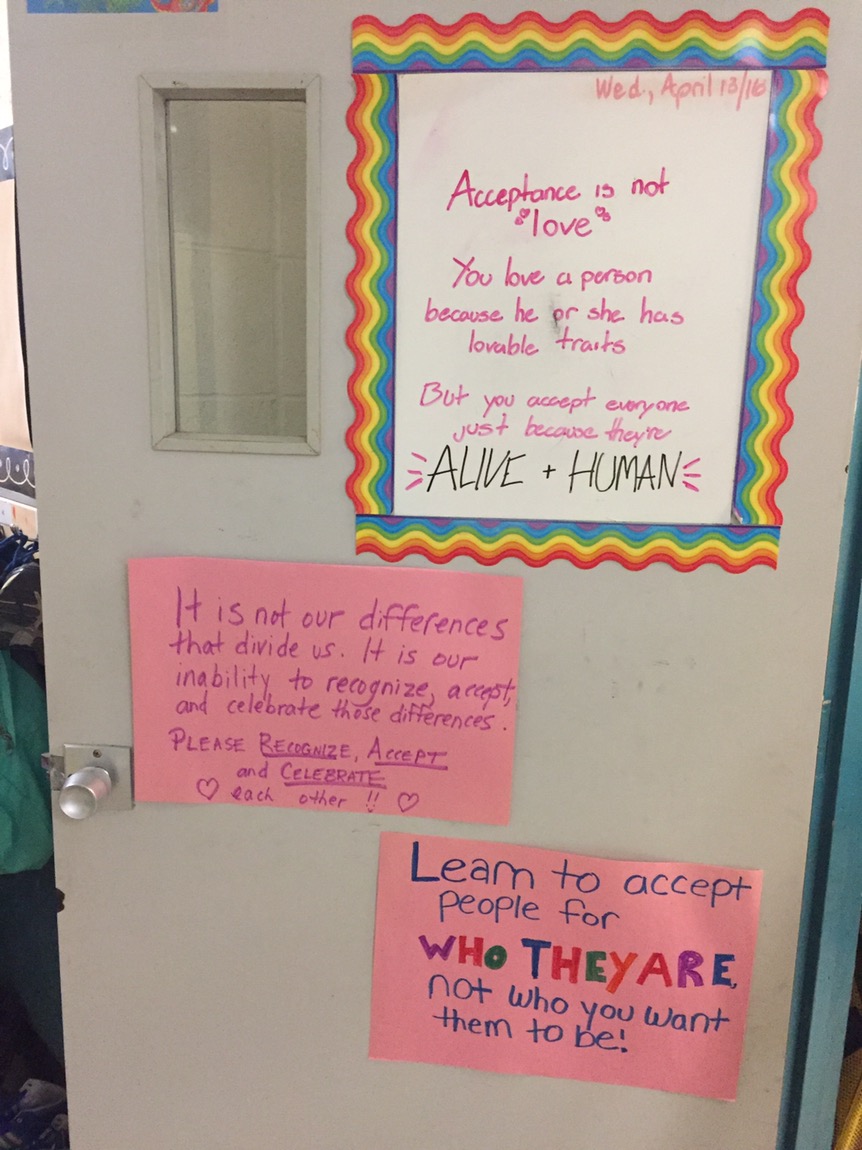 Wed., April 13/16
Acceptance is not
"love"
You love a person
because he or she has
lovable traits
But you accept everyone
just because they're
ALIVE + HUMAN
It is not our differences
that divide us. It is our
inability to recognize, accept,
and celebrate those differences.
PLEASE RECOGNIZE, ACCEPT
and CELEBRATE
♡ each other !! ♡
Learn to accept
people for
WHO THEY ARE,
not who you want
them to be!